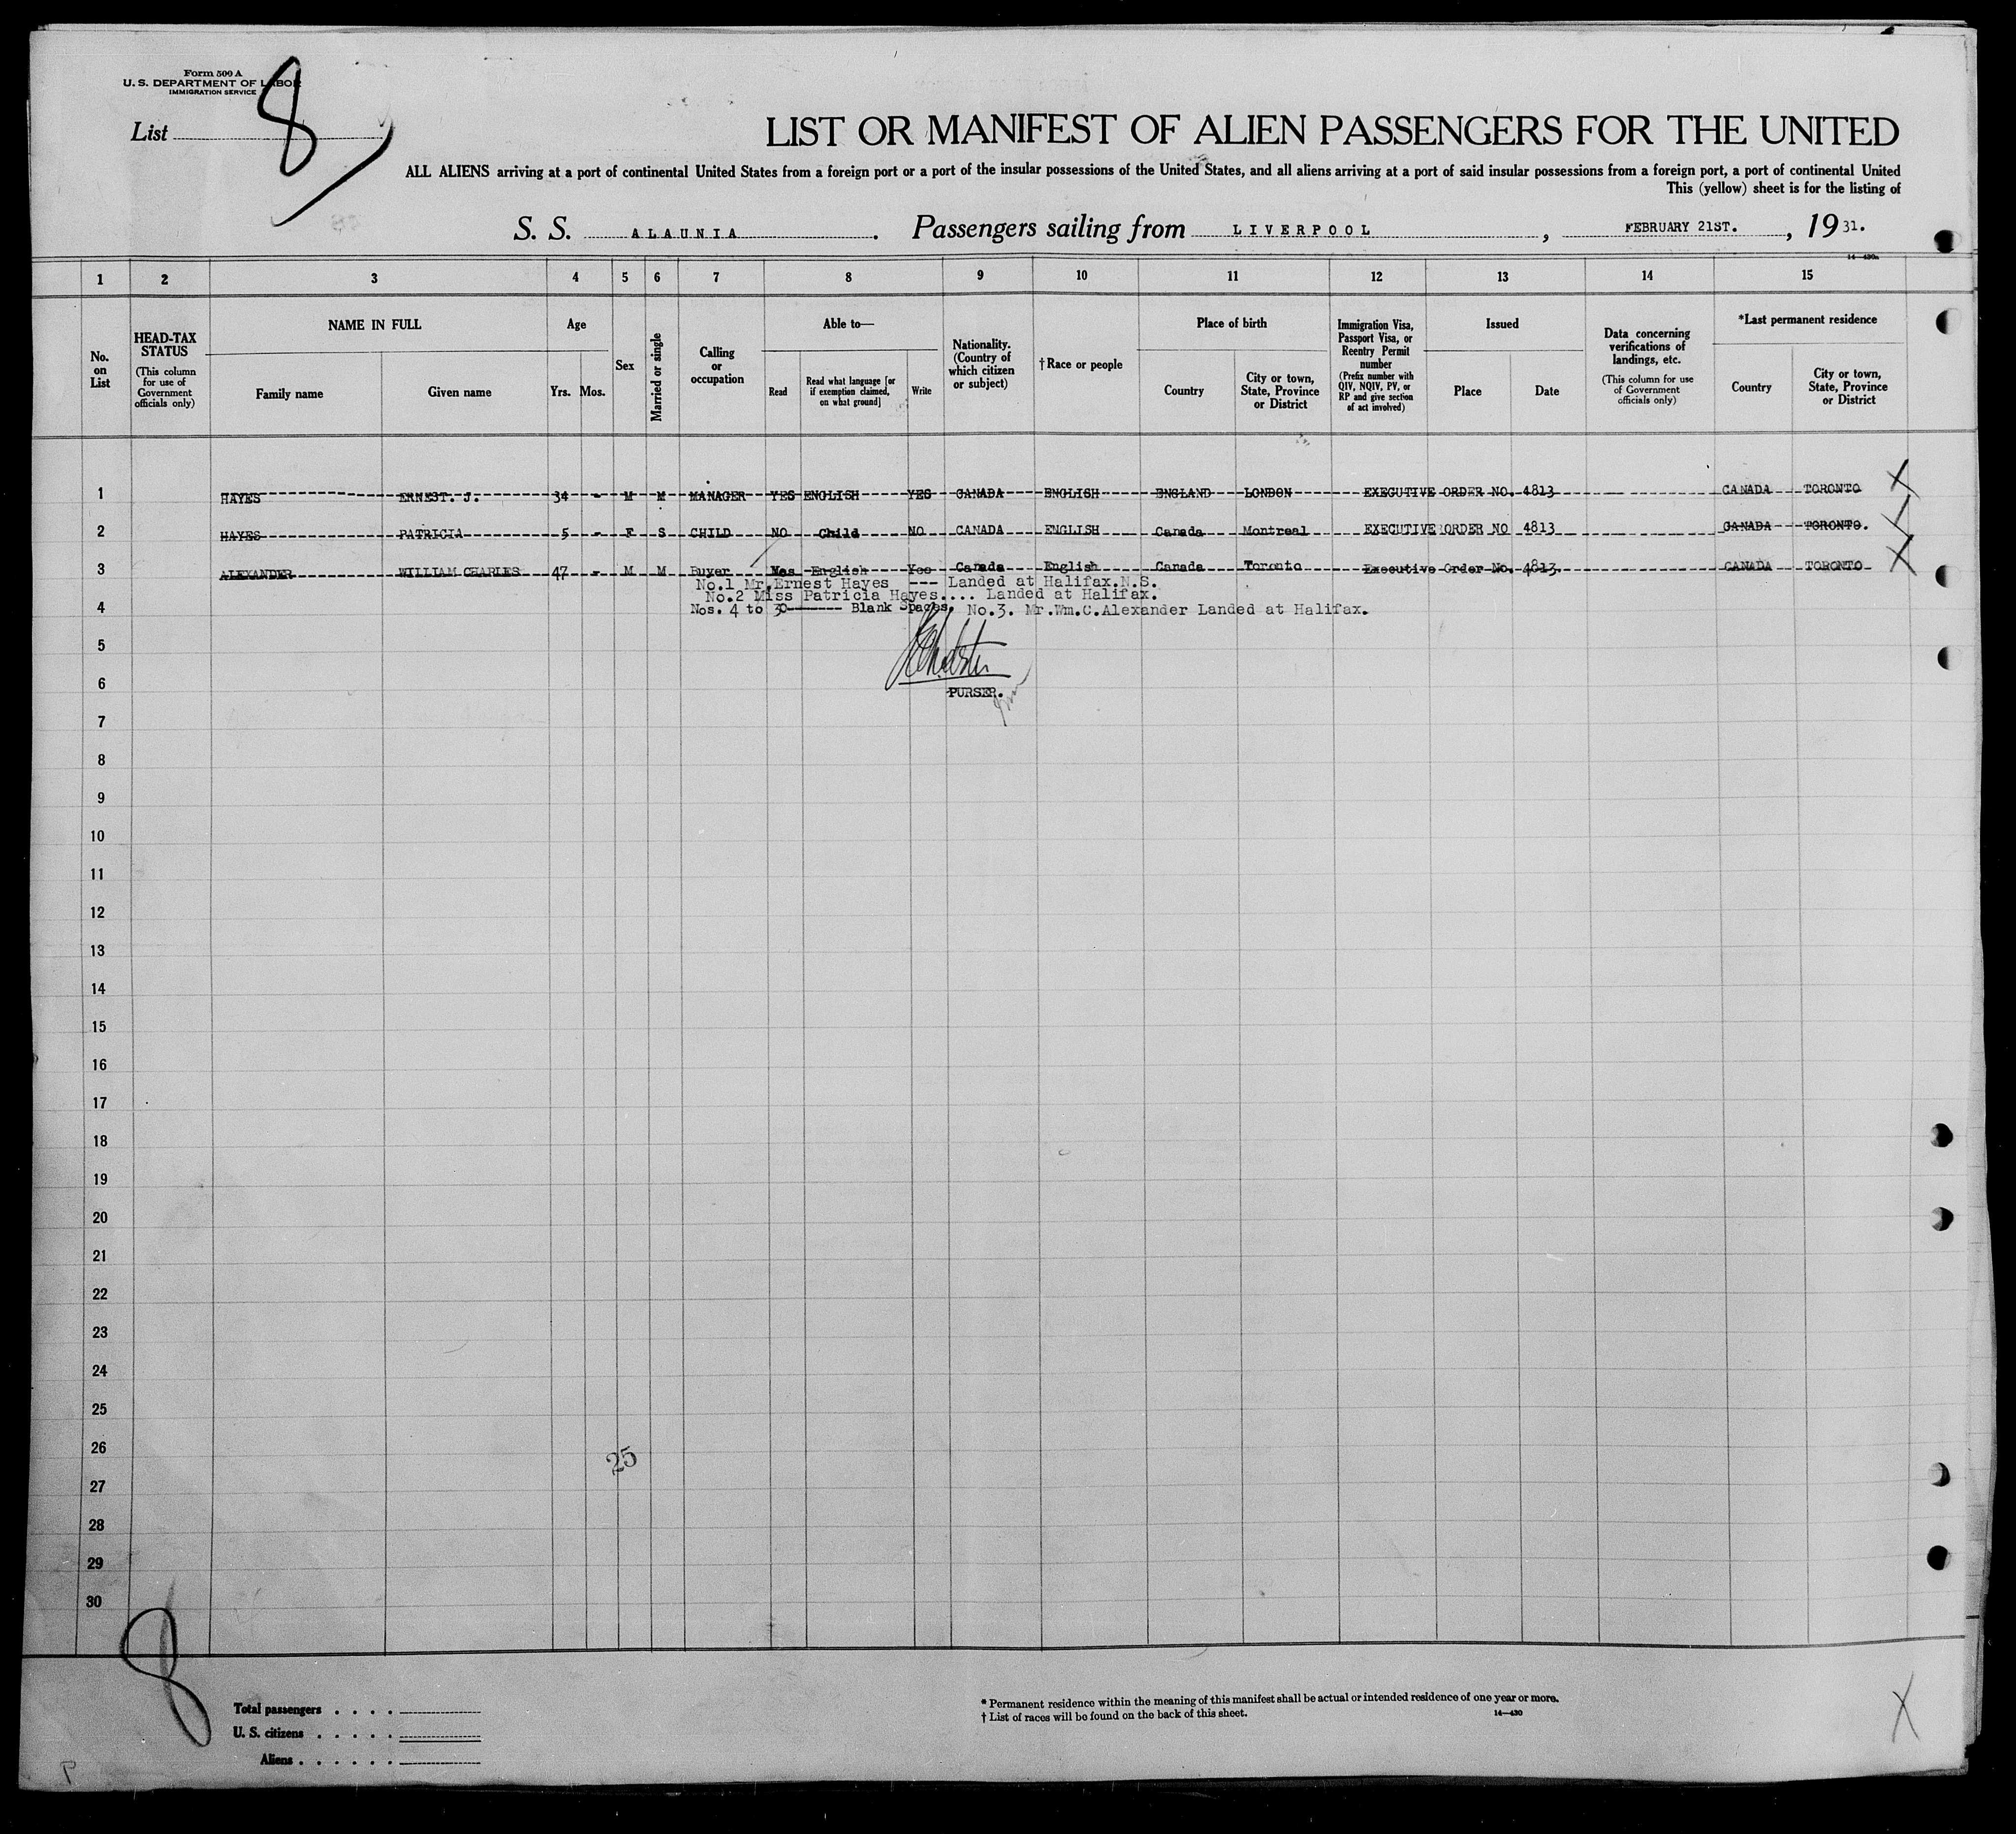 Form 500 A
U. S. DEPARTMENT OF LABOR
IMMIGRATION SERVICE
List 8
LIST OR MANIFEST OF ALIEN PASSENGERS FOR THE UNITED
ALL ALIENS arriving at a port of continental United States from a foreign port or a port of the insular possessions of the United States, and all aliens arriving at a port of said insular possessions from a foreign port, a port of continental United
This (yellow) sheet is for the listing of
S. S. ALAUNIA. Passengers sailing from LIVERPOOL, FEBRUARY 21ST., 1931.
14—430a
1 2 3 4 5 6 7 8 9 10 11 12 13 14 15
No. on List
HEAD-TAX STATUS
(This column for use of Government officials only)
NAME IN FULL
Family name
Given name
Age
Yrs. Mos.
Sex
Married or single
Calling or occupation
Able to—
Read
Read what language [or if exemption claimed, on what ground]
Write
Nationality. (Country of which citizen or subject)
†Race or people
Place of birth
Country
City or town, State, Province or District
Immigration Visa, Passport Visa, or Reentry Permit number
(Prefix number with QIV, NQIV, PV, or RP and give section of act involved)
Issued
Place
Date
Data concerning verifications of landings, etc.
(This column for use of Government officials only)
*Last permanent residence
Country
City or town, State, Province or District
1 HAYES ERNEST. J. 34 - M M MANAGER YES ENGLISH YES CANADA ENGLISH ENGLAND LONDON EXECUTIVE ORDER NO. 4813 CANADA TORONTO X
2 HAYES PATRICIA 5 - F S CHILD NO Child NO CANADA ENGLISH Canada Montreal EXECUTIVE ORDER NO 4813 CANADA TORONTO. X
3 ALEXANDER WILLIAM CHARLES 47 - M M Buyer Yes English Yes Canada English Canada Toronto Executive Order No. 4813 CANADA TORONTO X
No.1 Mr Ernest Hayes --- Landed at Halifax.N.S.
No.2 Miss Patricia Hayes.... Landed at Halifax.
4 Nos. 4 to 30------ Blank Spaces. No.3. Mr.Wm.C.Alexander Landed at Halifax.
5
6
PURSER.
7
8
9
10
11
12
13
14
15
16
17
18
19
20
21
22
23
24
25
26
25
27
28
29
30
8
Total passengers . . . .
U. S. citizens . . . . .
Aliens . . . . . .
* Permanent residence within the meaning of this manifest shall be actual or intended residence of one year or more.
† List of races will be found on the back of this sheet.
14—430
X
P